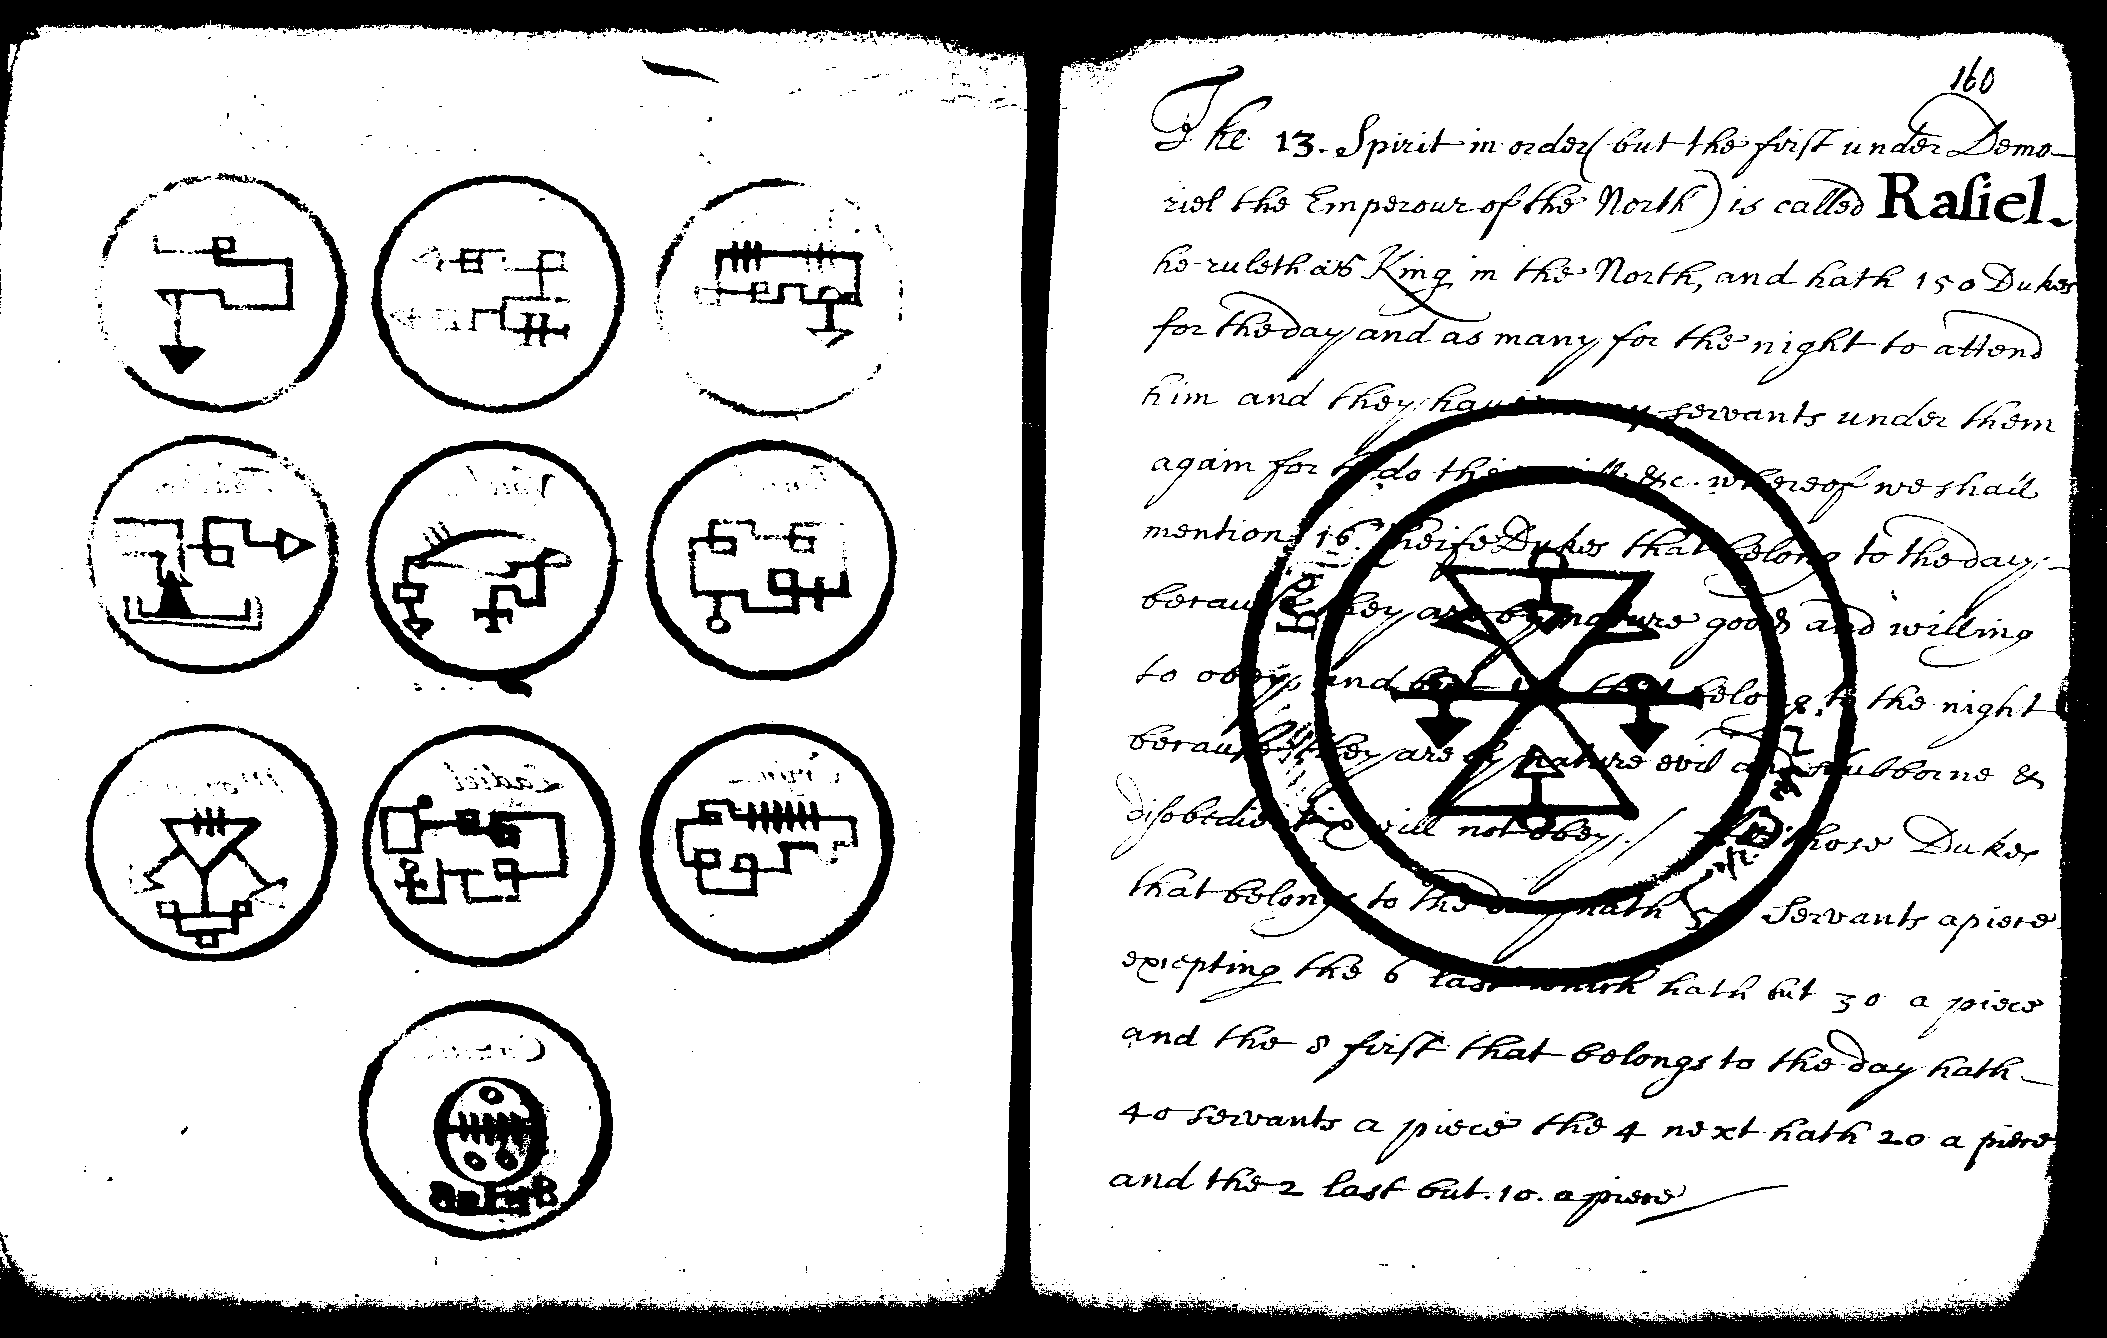 160
The 13. Spirit in order (but the first under Demo-
riel the Emperour of the North) is called Rasiel.
he ruleth as King in the North, and hath 150 Dukes
for the day and as many for the night to attend
him and they have many servants under them
again for to do their will &c. whereof we shall
mention 16 cheife Dukes that belong to the day
because they are by nature good and willing
to obey, and but that belong to the night
because they are of nature evil and stubborne &
disobedient & will not obey./ those Dukes
that belongs to the day hath 50 Servants apiece
excepting the 6 last which hath but 30 a piece
and the 8 first that belongs to the day hath
40 servants a piece the 4 next hath 20 a piece
and the 2 last but .10. apiece